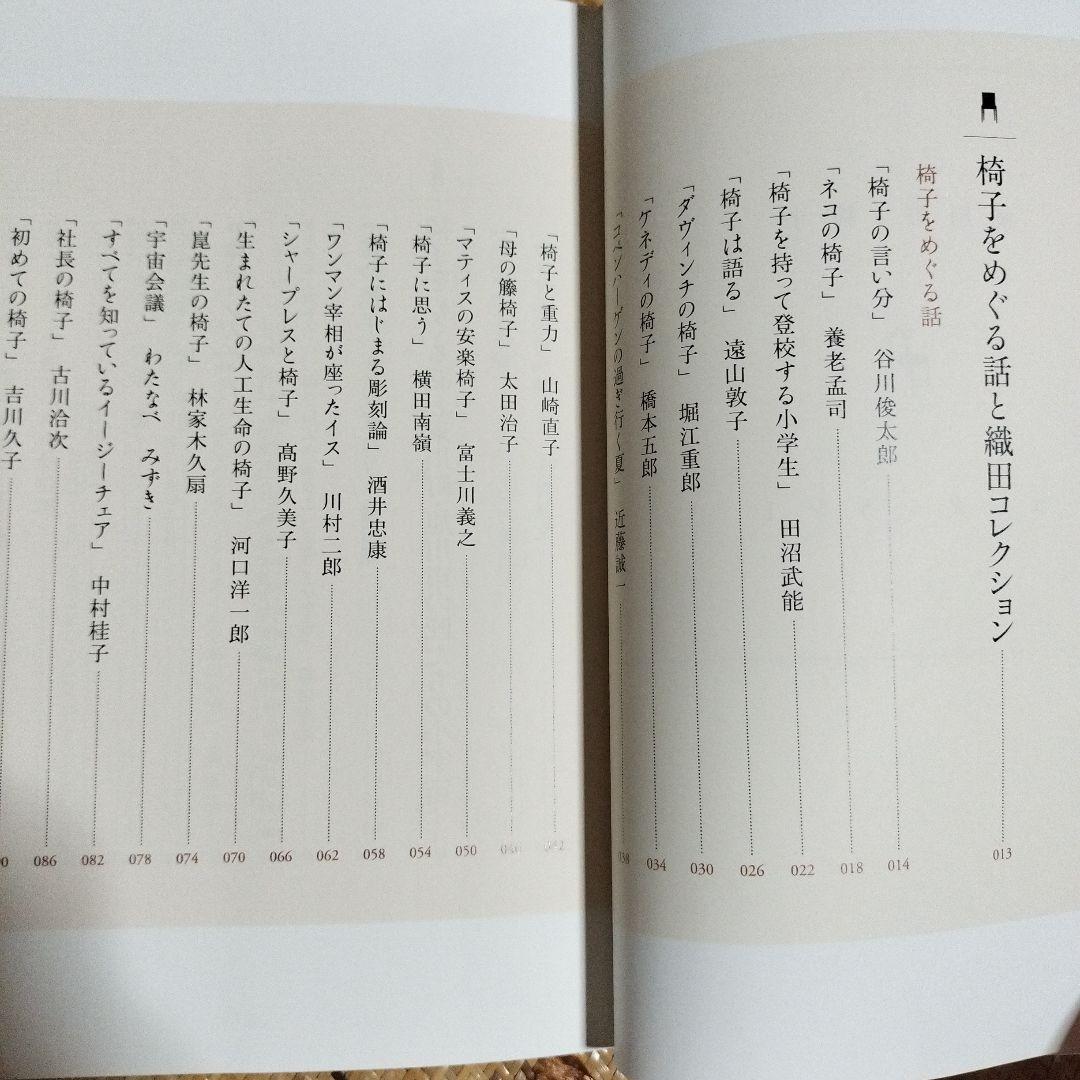 椅子をめぐる話と織田コレクション 013
椅子をめぐる話
「椅子の言い分」 谷川俊太郎 014
「ネコの椅子」 養老孟司 018
「椅子を持って登校する小学生」 田沼武能 022
「椅子は語る」 遠山敦子 026
「ダヴィンチの椅子」 堀江重郎 030
「ケネディの椅子」 橋本五郎 034
「コペンハーゲンの過ぎ行く夏」 近藤誠一 038
「椅子と重力」 山崎直子
「母の籐椅子」 太田治子
「マティスの安楽椅子」 富士川義之 050
「椅子に思う」 横田南嶺 054
「椅子にはじまる彫刻論」 酒井忠康 058
「ワンマン宰相が座ったイス」 川村二郎 062
「シャープレスと椅子」 髙野久美子 066
「生まれたての人工生命の椅子」 河口洋一郎 070
「崑先生の椅子」 林家木久扇 074
「宇宙会議」 わたなべ みずき 078
「すべてを知っているイージーチェア」 中村桂子 082
「社長の椅子」 古川治次 086
「初めての椅子」 吉川久子